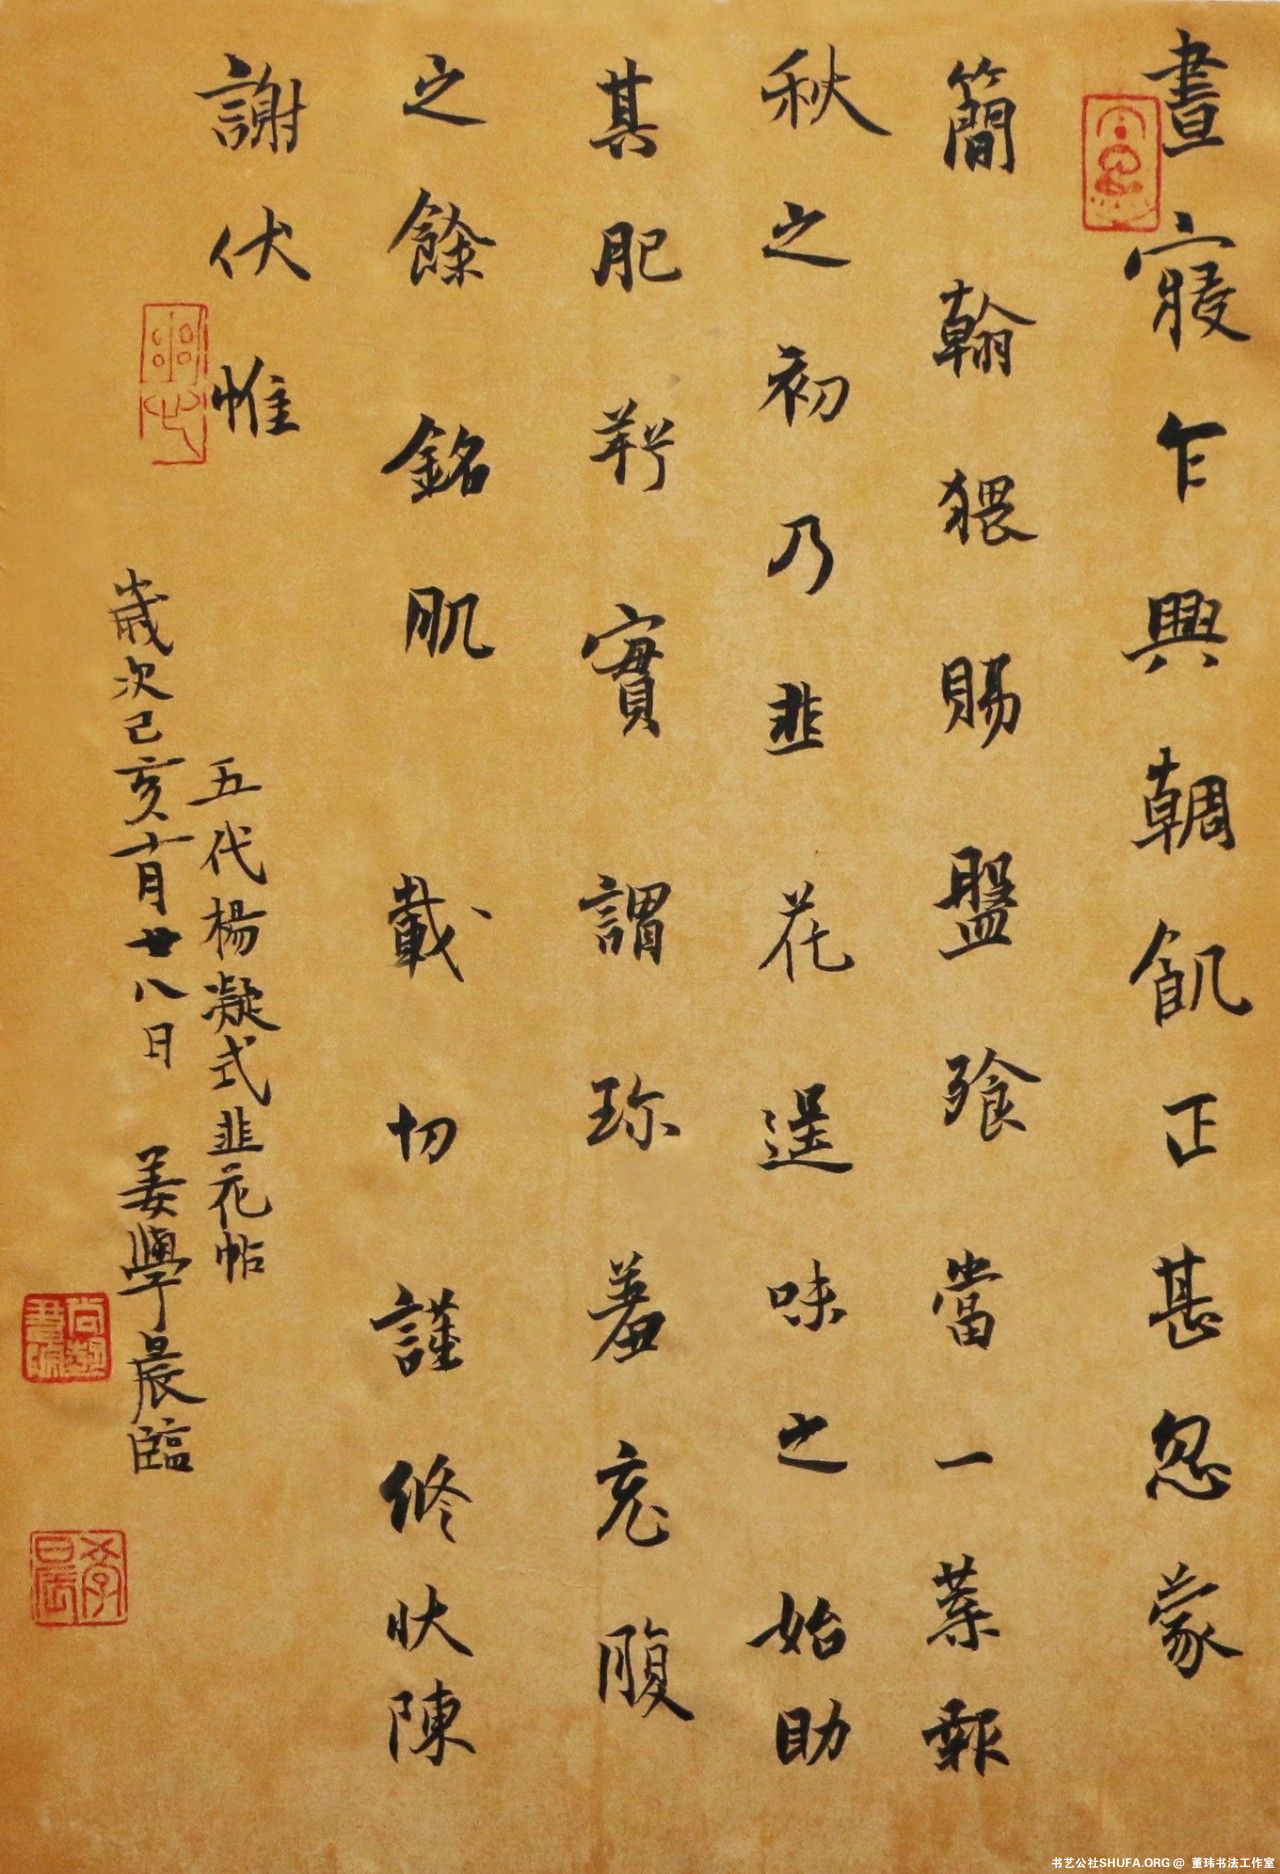 晝寢乍興輖飢正甚忽蒙
簡翰猥賜盤飧當一葉報
秋之初乃韭花逞味之始助
其肥羜實謂珍羞充腹
之餘銘肌載切謹修狀陳
謝伏惟
五代楊凝式韭花帖
歲次己亥十月廿八日 姜學晨臨
书艺公社SHUFA.ORG @ 董玮书法工作室